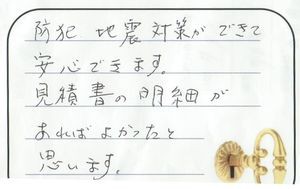 防犯 地震 対策が できて
安心できます。
見積書の明細が
あればよかったと
思います。